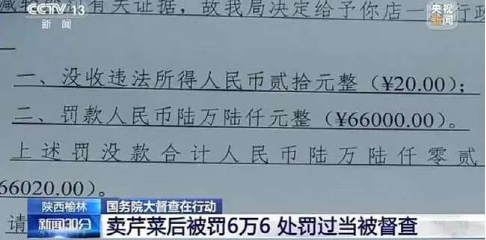 CCTV 13
新闻
央视
新闻
减轻
有关证据,故我局决定给予你店一
行政
一、没收违法所得人民币贰拾元整(¥20.00);
二、罚款人民币陆万陆仟元整(¥66000.00)。
上述罚没款合计人民币陆万陆仟零贰
66020.00)。
请
陕西榆林
国务院大督查在行动
新闻30分
卖芹菜后被罚6万6 处罚过当被督查